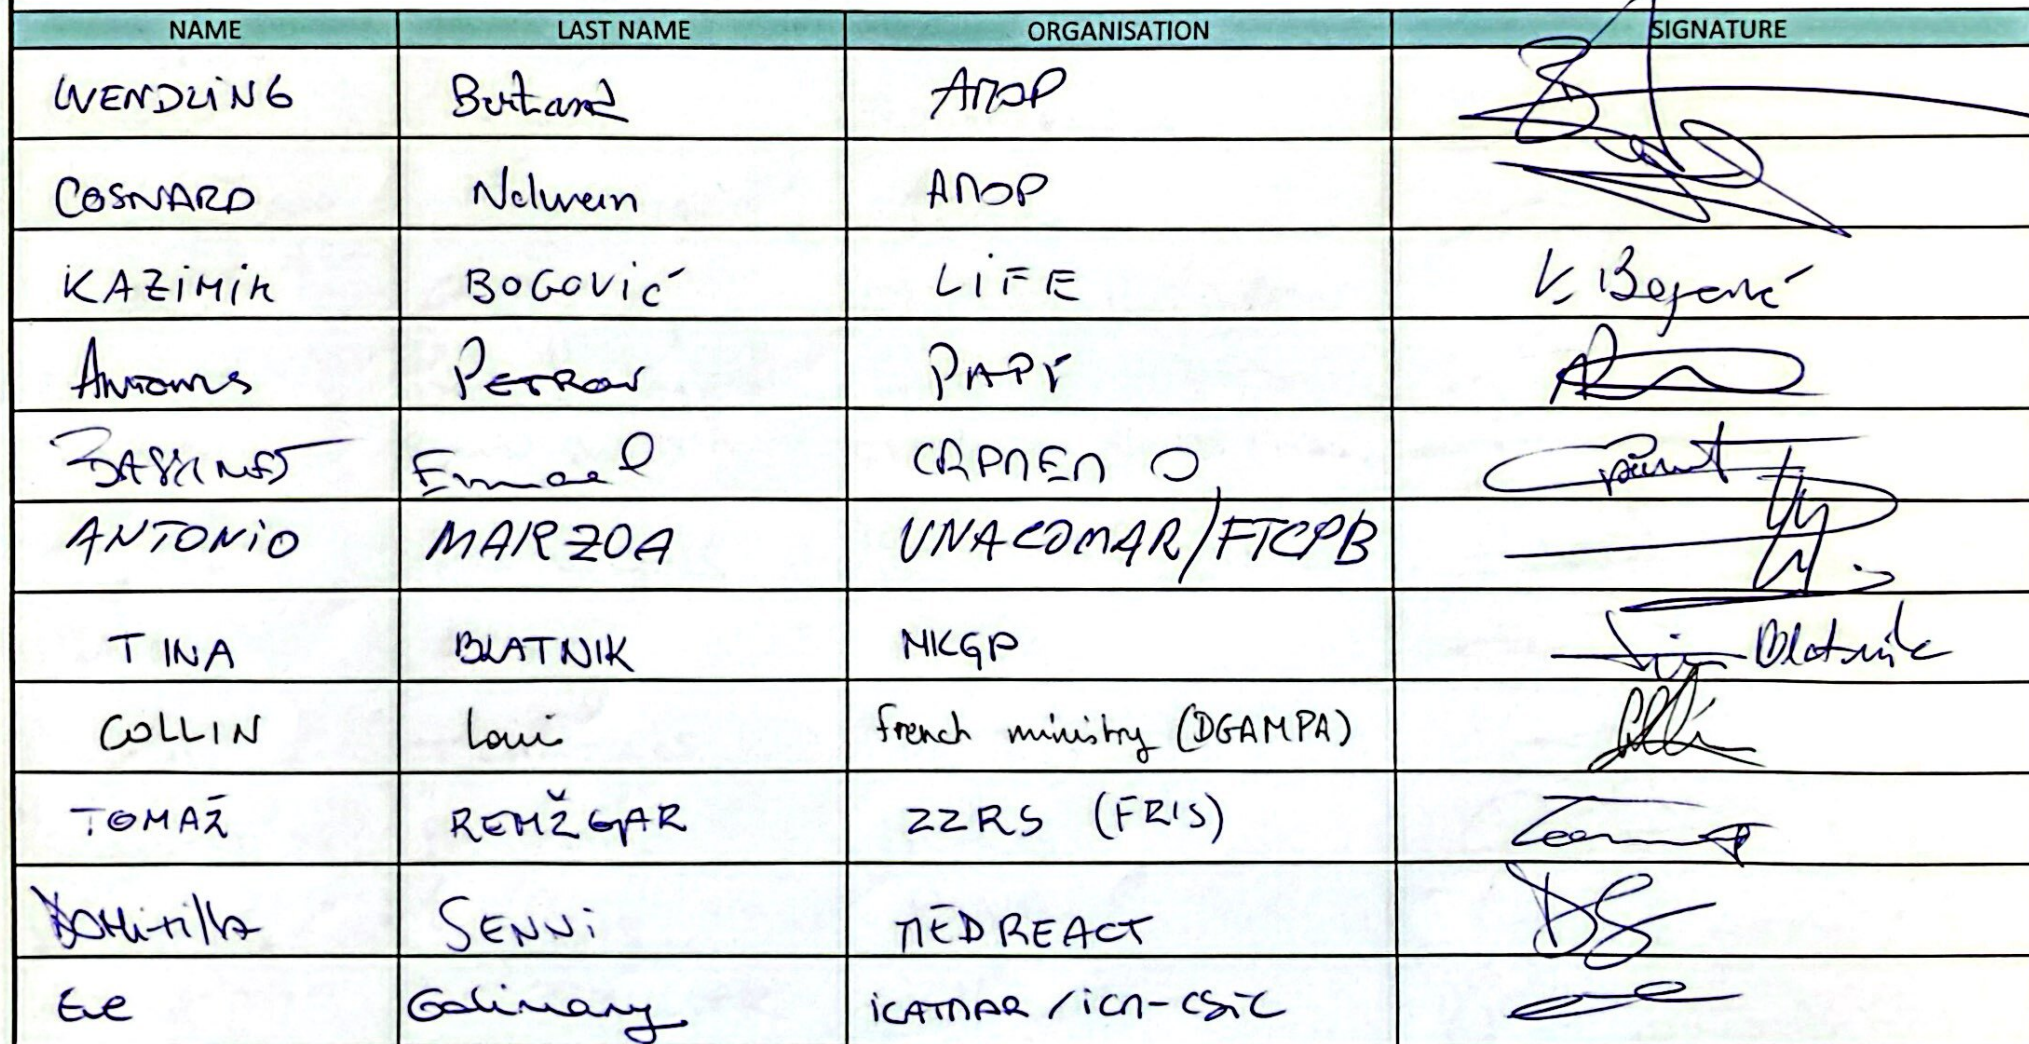 NAME LAST NAME ORGANISATION SIGNATURE
WENDLING Bertrand AMOP
COSNARD Nolwenn AMOP
KAZIMIR BOGOVIĆ LIFE K. Bogović
Antonis PETROU PAPF
CRPMEM O
ANTONIO MARZOA UNACOMAR/FTCPB
TINA BLATNIK MKGP Tina Blatnik
COLLIN Loui French ministry (DGAMPA)
TOMAŽ REMŽGAR ZZRS (FRIS)
DOMitilla SENNi MEDREACT DS
Eve Galimany iCATMAR/icm-CSiC